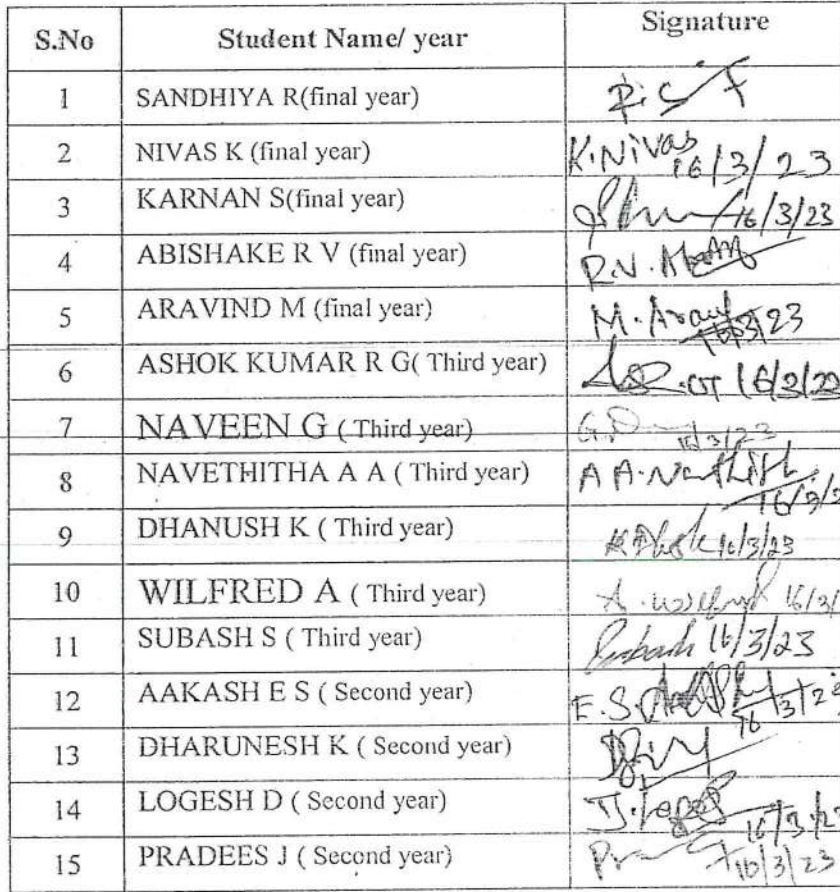 S.No Student Name/ year Signature
1 SANDHIYA R(final year)
2 NIVAS K (final year) K.Nivas 16/3/23
3 KARNAN S(final year) 16/3/23
4 ABISHAKE R V (final year) R.V.
5 ARAVIND M (final year) M. 16/3/23
6 ASHOK KUMAR R G( Third year)
7 NAVEEN G ( Third year) G. 16/3/23
8 NAVETHITHA A A ( Third year) A A.
9 DHANUSH K ( Third year) 16/3/23
10 WILFRED A ( Third year) A. 16/3/
11 SUBASH S ( Third year) Subash 16/3/23
12 AAKASH E S ( Second year) E.S. 16/3/23
13 DHARUNESH K ( Second year)
14 LOGESH D ( Second year) 16/3/23
15 PRADEES J ( Second year) 16/3/23